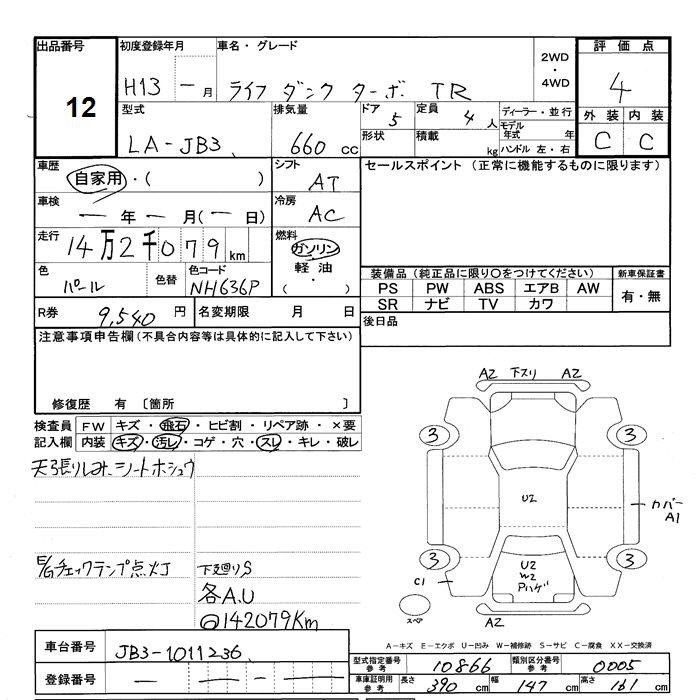 出品番号 初度登録年月 車名・グレード 2WD・4WD 評価点
12 H13 一月 ライフ ダンク ターボ TR 4
型式 排気量 ドア 5 定員 4人 ディーラー・並行 外装 内装
LA-JB3 660 cc 形状 積載 kg モデル年式 年 ハンドル 左・右 C C
車歴 シフト セールスポイント (正常に機能するものに限ります)
自家用・( ) AT
車検 冷房
一年 一月(一日) AC
走行 燃料
14万2千079km ガソリン
軽油
・( )
色 色替 色コード 装備品(純正品に限り○をつけてください) 新車保証書
パール NH636P PS PW ABS エアB AW 有・無
SR ナビ TV カワ
R券 9,540円 名変期限 月 日 後日品
注意事項申告欄(不具合内容等は具体的に記入して下さい)
修復歴 有 〔箇所 〕
検査員 FW キズ・飛石・ヒビ割・リペア跡・×要
記入欄 内装 キズ・汚レ・コゲ・穴・スレ・キレ・破レ
天張りしみ、シートホシュウ
E/Gチェックランプ点灯 下廻りS
各A.U
@142079Km
A2 下スリ A2
3 3
U2
カバーA1
3 3
U2
W2
Pハゲ
C1
スペア
A2
A-キズ E-エクボ U-凹み W-補修跡 S-サビ C-腐食 XX-交換済
車台番号 JB3-1011236
登録番号 — — —
型式指定番号 参考 10866 類別区分番号 参考 0005
車庫証明用 参考 長さ 390 cm 幅 147 cm 高さ 161 cm